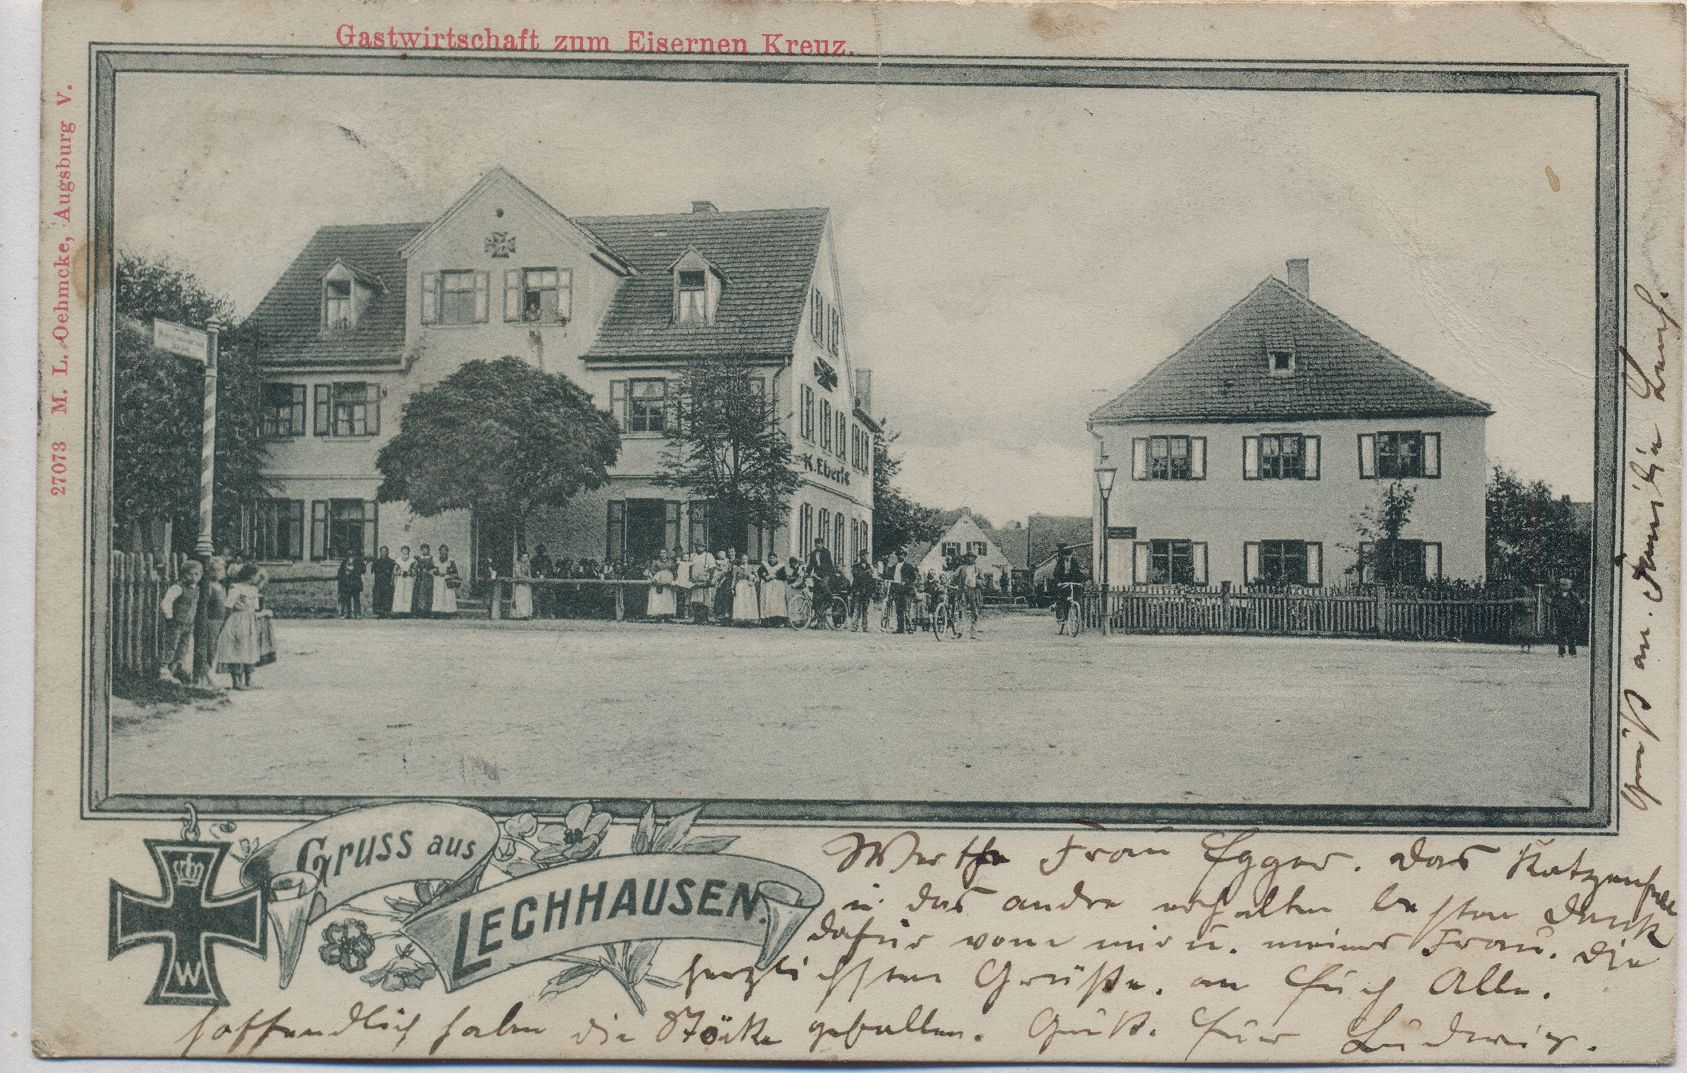 Gastwirtschaft zum Eisernen Kreuz.
27073 M. L. Oehmcke, Augsburg V.
K. Eberle
Gruss aus
LECHHAUSEN.
W
Werthe Frau Egger. Das Katzenfell
u. das andre erhalten besten Dank
dafür von mir u. meiner Frau. Die
herzlichsten Grüße. an Euch Alle.
hoffendlich haben die Stöcke gefallen. Gruß. Euer Ludwig.
Gruß an Familie